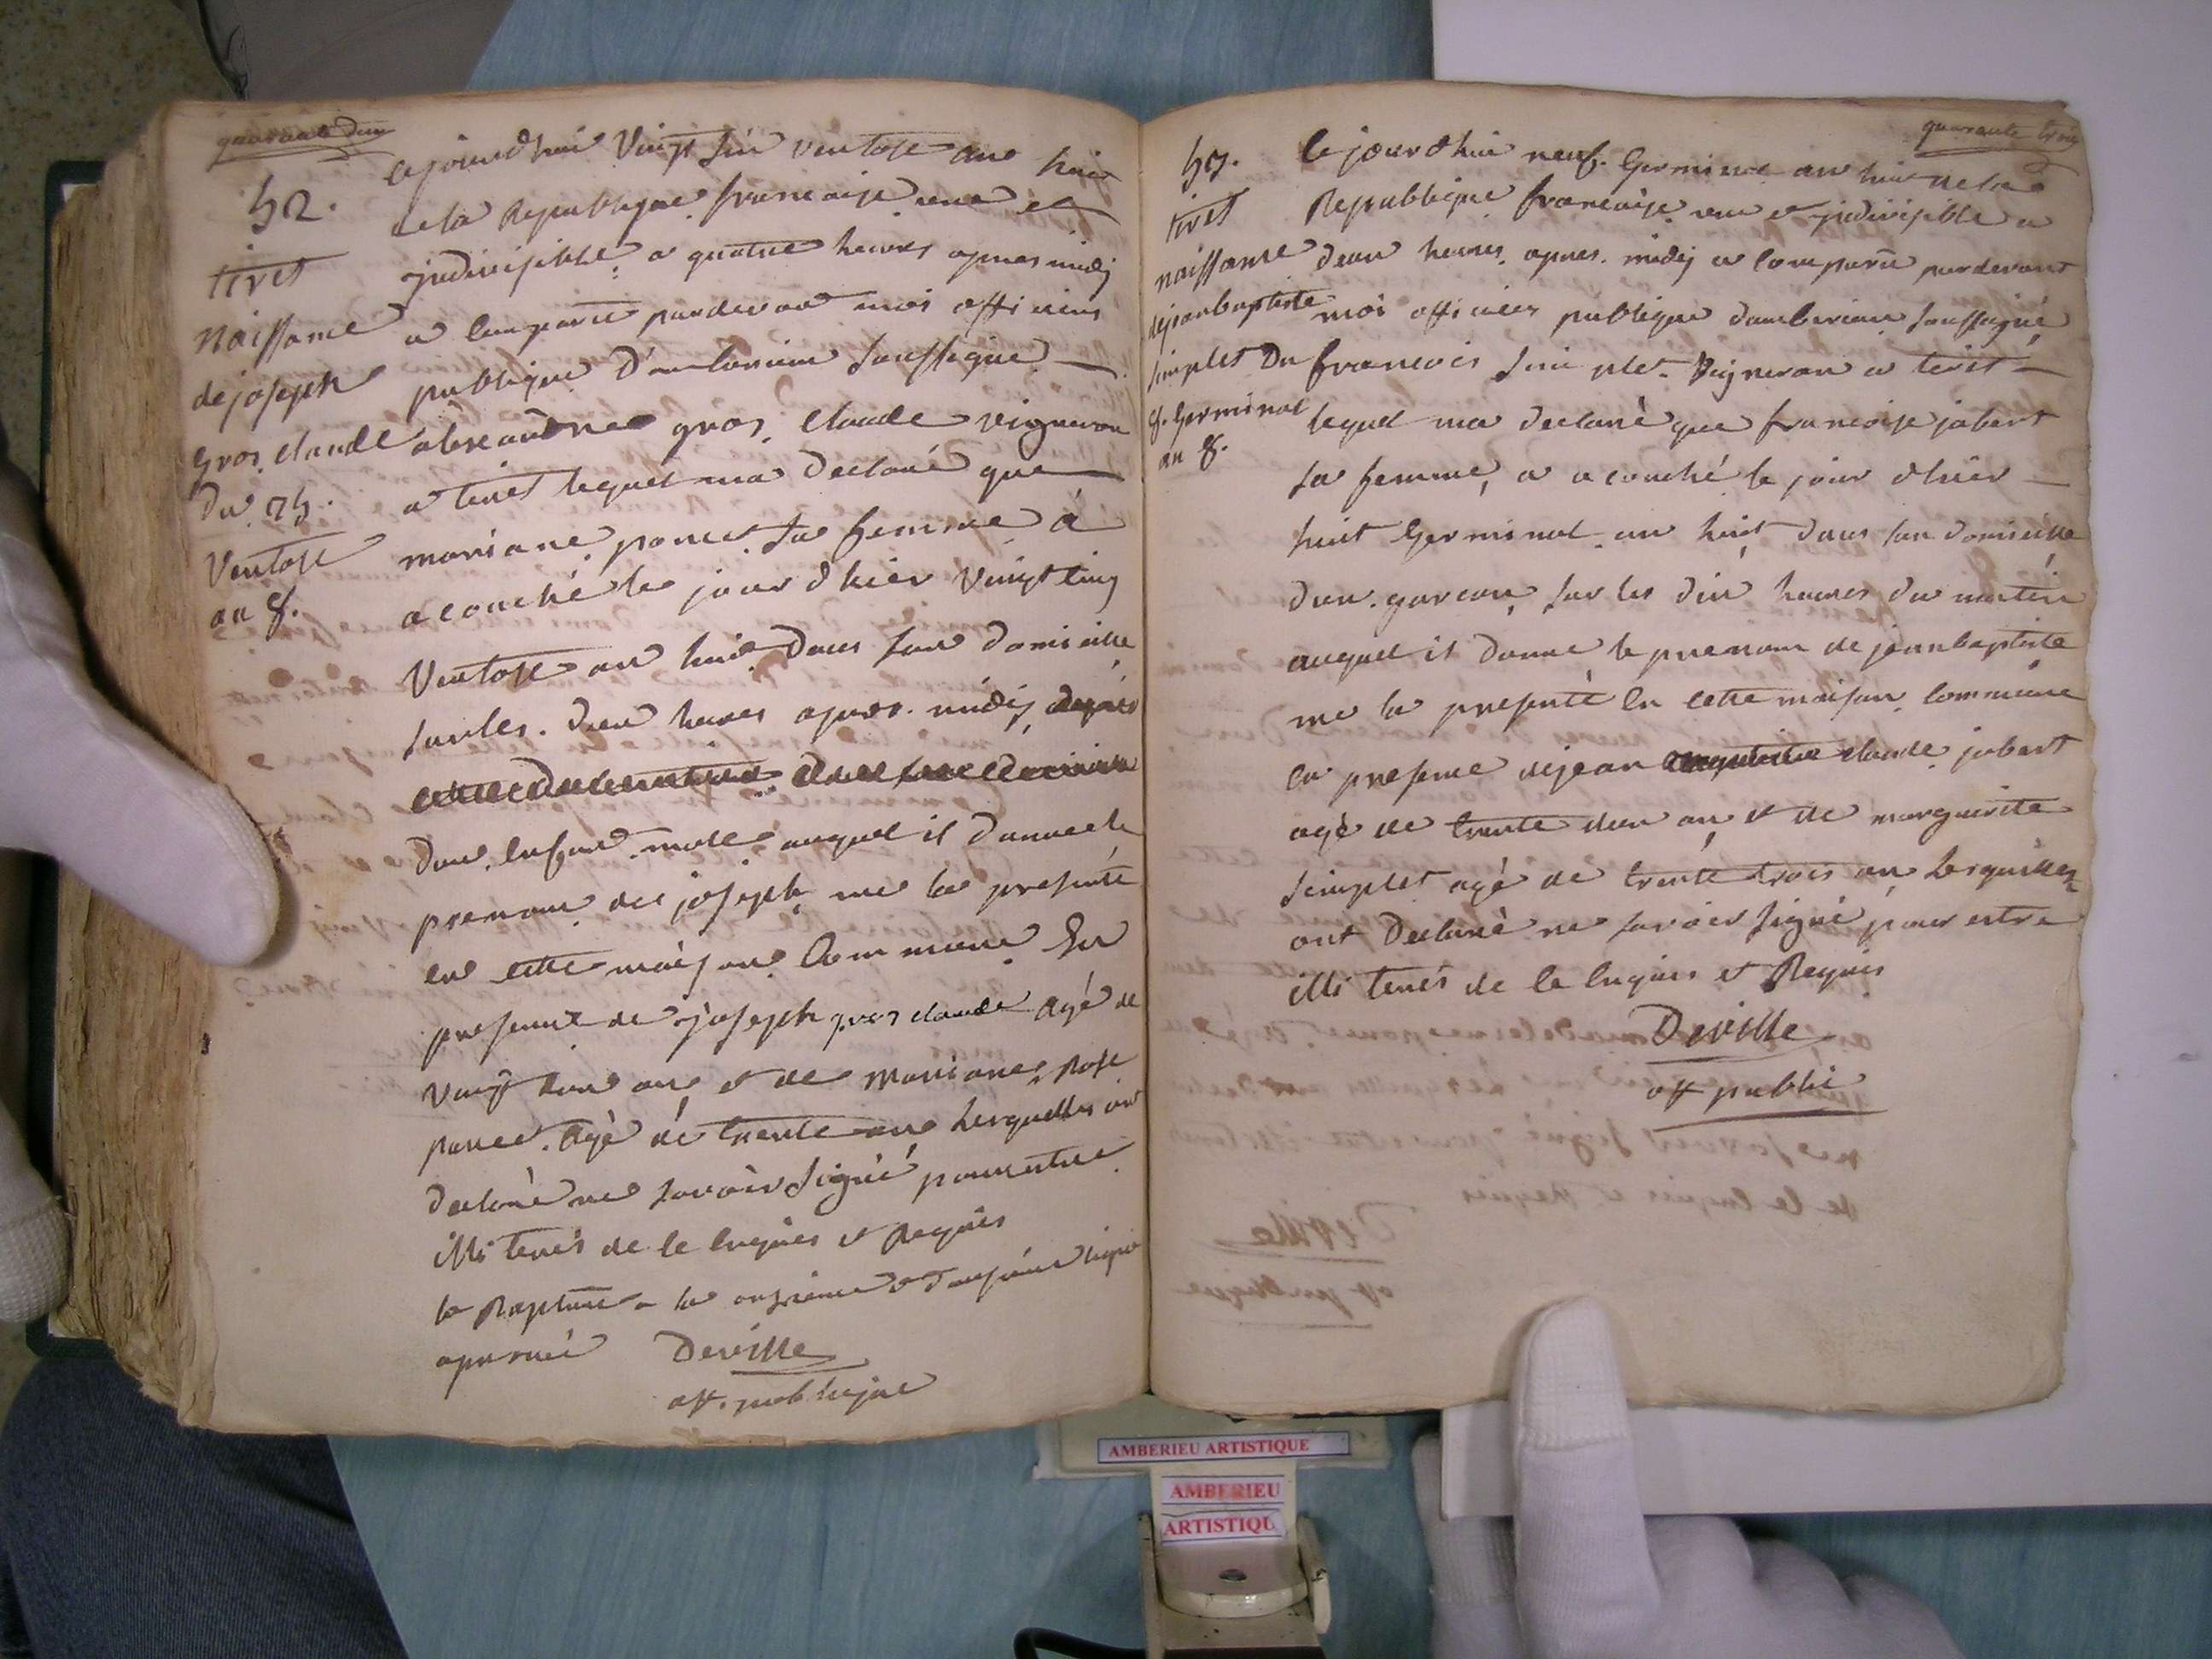 quarante deux
52.
tiret
naissance
de joseph
gros claude
du 25.
Ventose
an 8.
Cejourdhui Vingt six ventose an huit
de la Republique francaise une et
jndivisible a quatre heures apres midÿ
a comparu pardevant moi officiers
publique D'amberieu soussigné
alexandre gros claude vigneron
a tiret lequel ma declaré que
mariane ponce sa femme à
acouché le jour dhier vingt cinq
Ventose an huit dans son domicille
sur les deux heures apres midÿ
dun enfant male auquel il donne le
prenom de joseph me la presenté
en cette maison Commune En
presence de joseph gros claude agé de
vingt deux ans et de Mariane Rose
ponce agé de trente ans Lesquelles ont
declaré ne savoir signé pour etre
illi terés de le enquis et Requis
la Rapture a la onzieme et douzieme ligne
aprouvé
Deville
off. publique
quarante trois
53.
tiret
naissance
dejeanbaptiste
simplet Du
8. Germinal
an 8.
le jourdhui neuf Germinal an huit de la
Republique francaise une et jndivisible a
deux heures apres midÿ a comparu pardevant
moi officier publique damberieu soussigné
francois simplet Vigneron a tiret
lequel ma declaré que francoise jobert
sa femme a acouché le jour dhier
huit Germinal an huit dans son domicille
dun garcon sur les dix heures du matin
auquel il donne le prenom de jeanbaptiste
me la presenté en cette maison commune
en presence de jean claude jobert
agé de trente deux ans et de marguerite
simplet agé de trente trois ans Lesquelles
ont declaré ne savoir signé pour estre
illi terés de le enquis et Requis
Deville
off public
AMBERIEU ARTISTIQUE
AMBERIEU
ARTISTIQU